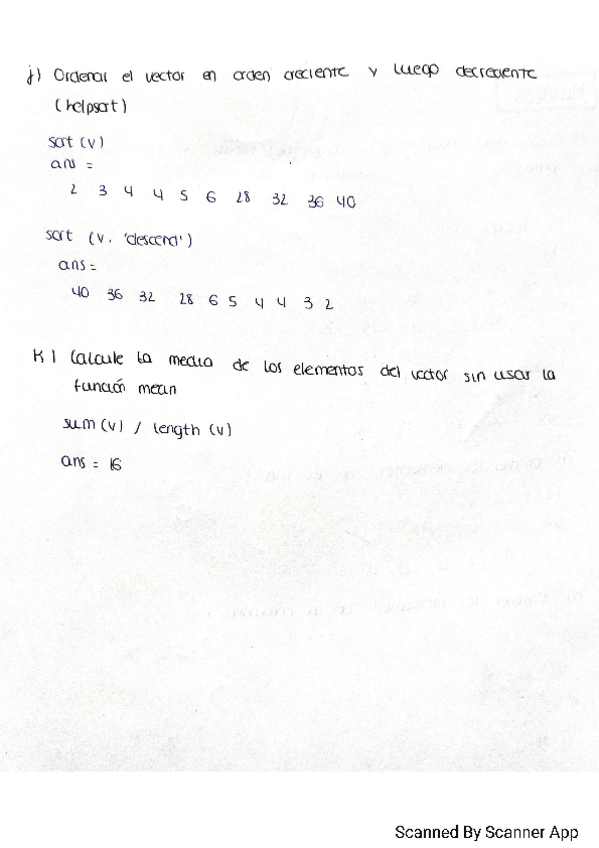 j) Ordenar el vector en orden creciente y luego decreciente
(helpsort)
sort (v)
ans =
2 3 4 4 5 6 28 32 36 40
sort (v, 'descend')
ans =
40 36 32 28 6 5 4 4 3 2
K) Calcule la media de los elementos del vector sin usar la
función mean
sum (v) / length (v)
ans = 16
Scanned By Scanner App